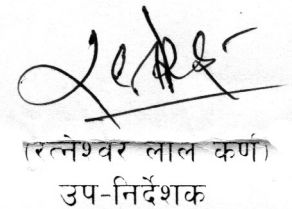 (रत्नेश्वर लाल कर्ण)
उप-निर्देशक